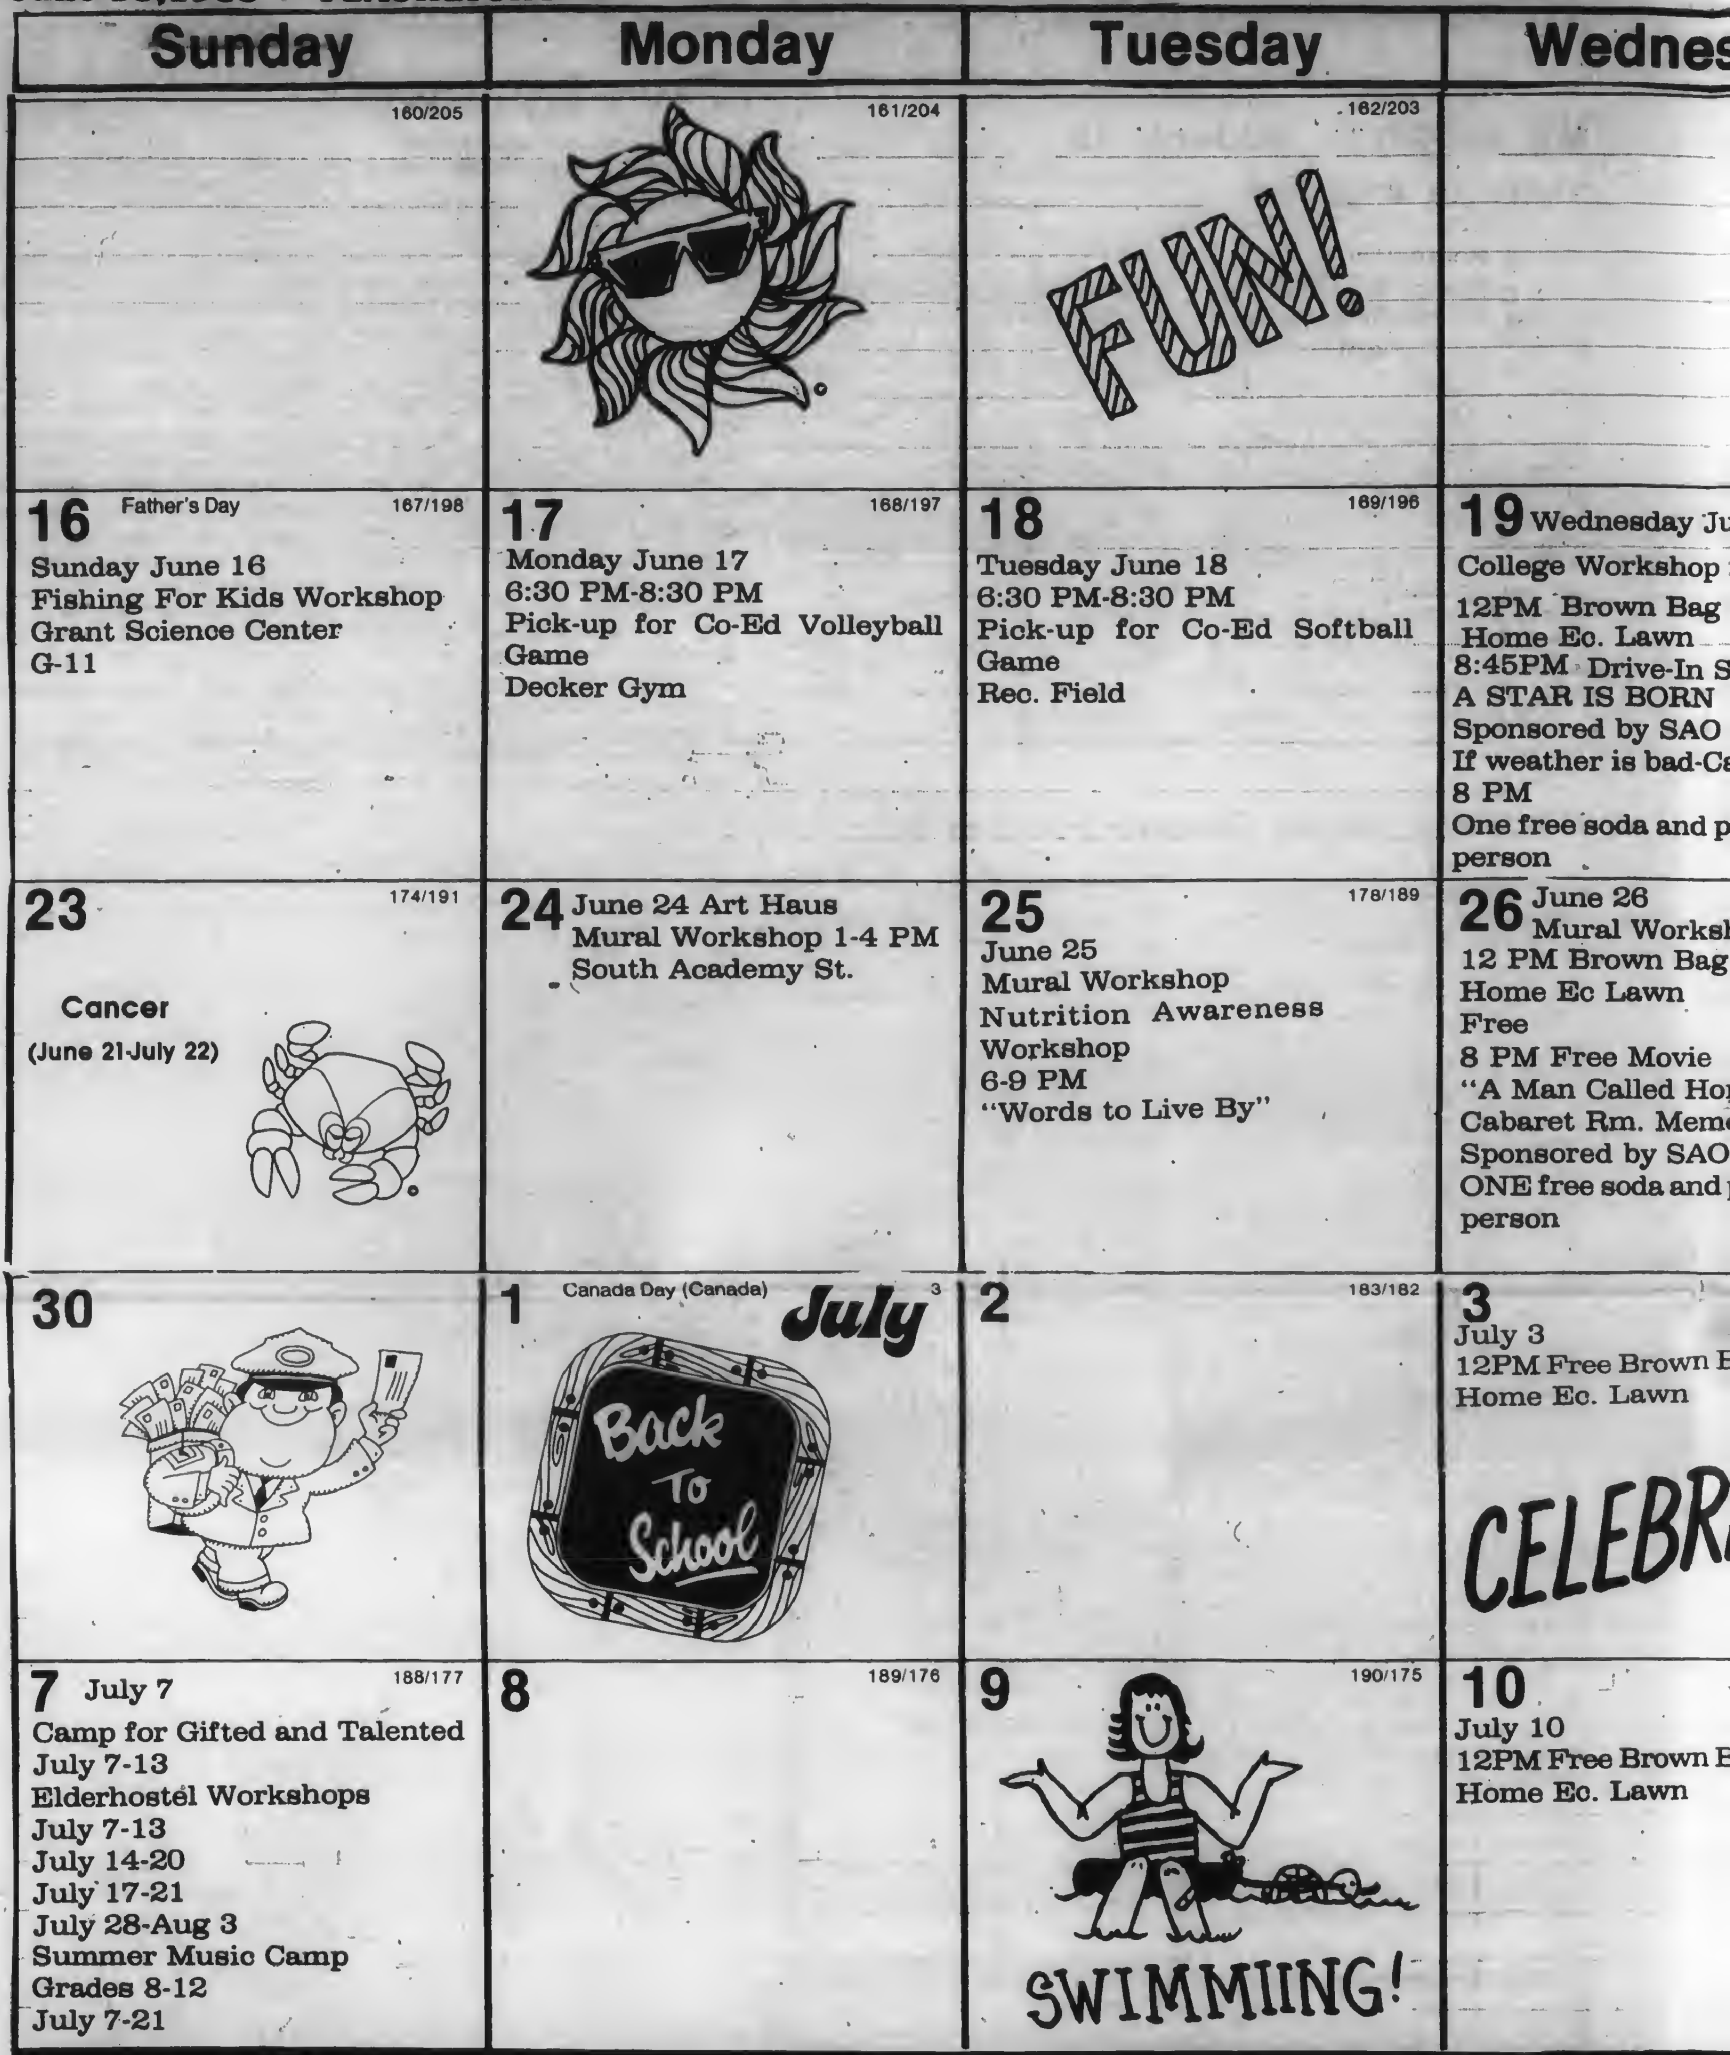 Sunday
Monday
Tuesday
160/205
161/204
162/203
FUN!
16 Father's Day 167/198
Sunday June 16
Fishing For Kids Workshop
Grant Science Center
G-11
17 168/197
Monday June 17
6:30 PM-8:30 PM
Pick-up for Co-Ed Volleyball
Game
Decker Gym
18 169/196
Tuesday June 18
6:30 PM-8:30 PM
Pick-up for Co-Ed Softball
Game
Rec. Field
19 Wednesday
College Workshop
12PM Brown Bag
Home Ec. Lawn
8:45PM Drive-In
A STAR IS BORN
Sponsored by SAO
If weather is bad-
8 PM
One free soda and
person
23 174/191
Cancer
(June 21-July 22)
24 June 24 Art Haus
Mural Workshop 1-4 PM
South Academy St.
25 178/189
June 25
Mural Workshop
Nutrition Awareness
Workshop
6-9 PM
"Words to Live By"
26 June 26
Mural
12 PM Brown Bag
Home Ec Lawn
Free
8 PM Free Movie
"A Man Called
Cabaret Rm.
Sponsored by SAO
ONE free soda and
person
30
1 Canada Day (Canada) July 3
Back
To
School
2 183/182
3
July 3
12PM Free Brown
Home Ec. Lawn
7 July 7 188/177
Camp for Gifted and Talented
July 7-13
Elderhostel Workshops
July 7-13
July 14-20
July 17-21
July 28-Aug 3
Summer Music Camp
Grades 8-12
July 7-21
8 189/176
9 190/175
SWIMMIING!
10
July 10
12PM Free Brown
Home Ec. Lawn